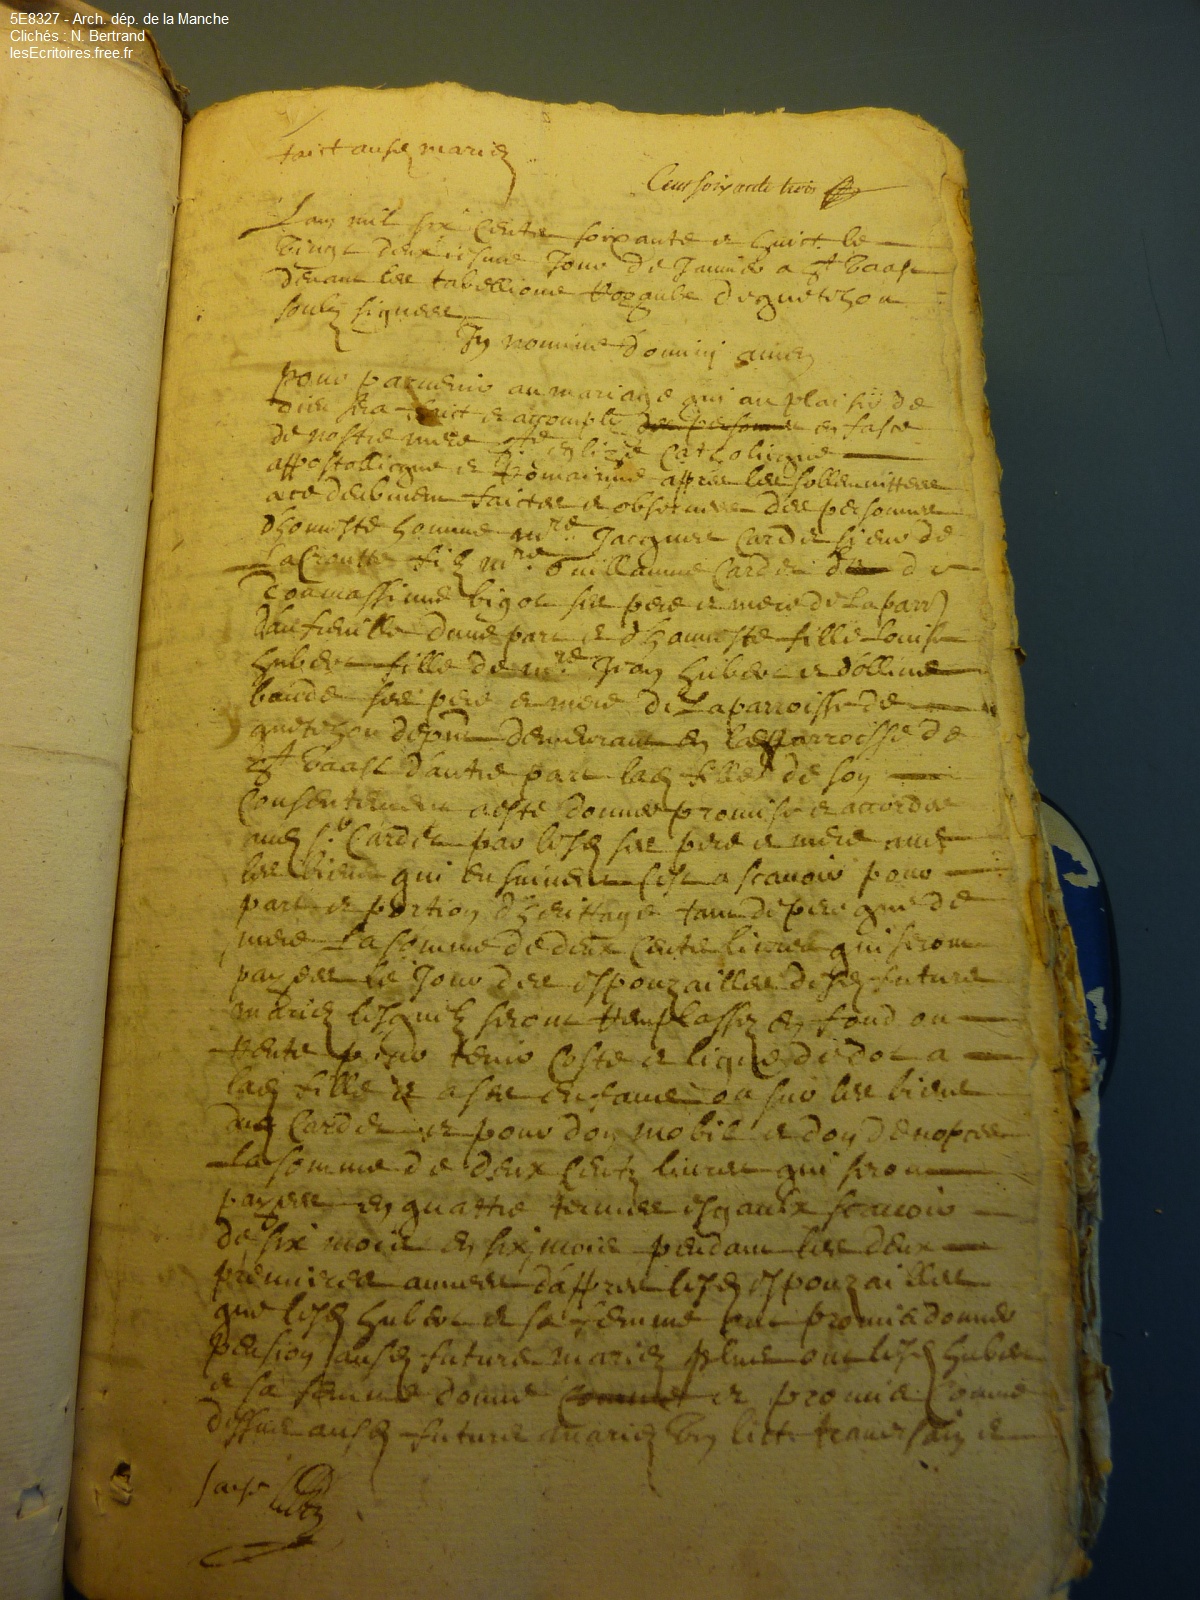 5E8327 - Arch. dép. de la Manche
Clichés : N. Bertrand
lesEcritoires.free.fr
faict ausd mariez
Cent soixante trois
Lan mil six centz soixante et huict le
vingt deuxiesme Jour de Janvier a St Vaast
devant les tabellions Royaulx de quetehou
soubz signees
In nomine domini amen
pour parvenir au mariage qui au plaisir de
dieu sera faict et accomply en fasce
de nostre mere Ste eglize Catholicque
appostollicque et Romainne appres les sollemnittees
a ce deubment faictes et observees des personnes
dhonneste homme mre Jacques Cardet sieur de
La Croutte filz mre Guillaume Cardet et de
Thomassinne bigot ses pere et mere de La parr
danfreville dune part et dhonneste fille Louise
hubert fille de mre Jean hubert et dolline
baude ses pere et mere de La parroisse de
quetehou depnt demeurant en lad parroisse de
St Vaast dautre part lad fille de son
Consentement a este donnee promise et accordee
aud sr Cardet par lesd ses pere et mere avec
les biens qui ensuivent Cest a scavoir pour
part et portion dherittage tant de pere que de
mere La somme de deux Centz livres qui seront
payees le Jour des espouzailles desd future
mariez lesquelz seront Remplassez en fond ou
Rente pour tenir Coste et ligne de dot a
lad fille et a ses enfans ou sur les biens
dud Cardet et pour don mobil et don de nopces
La somme de deux Centz livres qui seront
payees en quattre termes esgaulx scavoir
de six mois en six mois pendant les deux
premieres annees dappres lesd espouzailles
que lesd hubert et sa femme ont promis donner
pension ausd future mariez plus ont lesd hubert
et sa femme donne et promis Comme
dessus ausd future mariez un lict traversain et